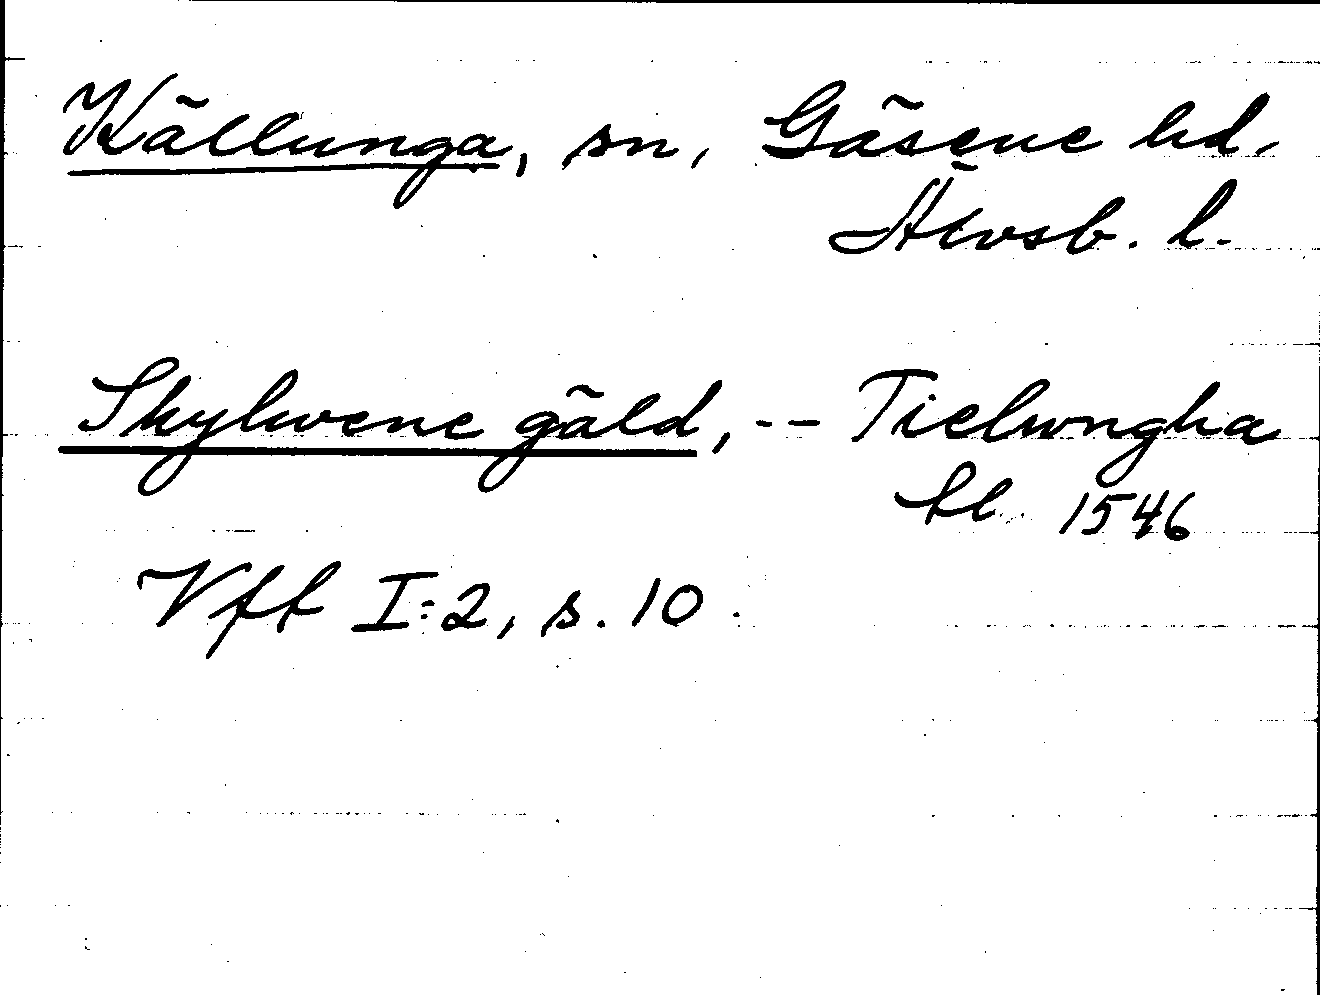 Källunga, sn, Gäsene hd.
Älvsb. l.
Skylwene gäld, -- Tielwngha
sl 1546
Vff I:2, s. 10.